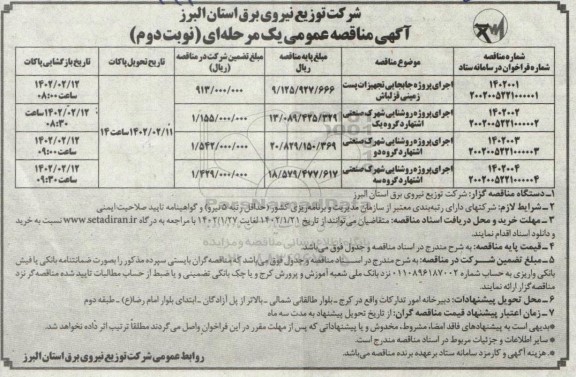 شرکت توزیع نیروی برق استان البرز
آگهی مناقصه عمومی یک مرحله‌ای (نوبت دوم)
شماره مناقصه
شماره فراخوان در سامانه ستاد
موضوع مناقصه
مبلغ پایه مناقصه (ریال)
مبلغ تضمین شرکت در مناقصه (ریال)
تاریخ تحویل پاکات
تاریخ بازگشایی پاکات
۱۴۰۲۰۰۱
۲۰۰۲۰۰۵۲۲۱۰۰۰۰۰۱
اجرای پروژه جابجایی تجهیزات پست زمینی قزلباش
۹/۱۲۵/۹۲۷/۶۶۶
۹۱۳/۰۰۰/۰۰۰
۱۴۰۲/۰۲/۱۱ ساعت ۱۴
۱۴۰۲/۰۲/۱۲
ساعت ۰۸:۰۰
۱۴۰۲۰۰۲
۲۰۰۲۰۰۵۲۲۱۰۰۰۰۰۲
اجرای پروژه روشنایی شهرک صنعتی اشتهارد گروه یک
۱۳/۰۸۹/۴۳۵/۳۲۹
۱/۱۵۵/۰۰۰/۰۰۰
۱۴۰۲/۰۲/۱۲ ساعت
۰۸:۳۰
۱۴۰۲۰۰۳
۲۰۰۲۰۰۵۲۲۱۰۰۰۰۰۳
اجرای پروژه روشنایی شهرک صنعتی اشتهارد گروه دو
۲۰/۸۲۹/۱۵۰/۳۶۹
۱/۵۴۲/۰۰۰/۰۰۰
۱۴۰۲/۰۲/۱۲
ساعت ۰۹:۰۰
۱۴۰۲۰۰۴
۲۰۰۲۰۰۵۲۲۱۰۰۰۰۰۴
اجرای پروژه روشنایی شهرک صنعتی اشتهارد گروه سه
۱۸/۵۷۹/۴۷۷/۶۱۷
۱/۴۲۹/۰۰۰/۰۰۰
۱۴۰۲/۰۲/۱۲
ساعت ۰۹:۳۰
۱-دستگاه مناقصه گزار: شرکت توزیع نیروی برق استان البرز
۲-شرایط لازم: شرکتهای دارای رتبه‌بندی معتبر از سازمان مدیریت و برنامه‌ریزی کشور (حداقل رتبه ۵ نیرو) و گواهینامه تایید صلاحیت ایمنی
۳-مهلت خرید و محل دریافت اسناد مناقصه: متقاضیان می‌توانند از تاریخ ۱۴۰۲/۱/۲۱ لغایت ۱۴۰۲/۱/۲۷ با مراجعه به درگاه www.setadiran.ir نسبت به خرید
و دانلود اسناد اقدام نمایند.
۴-قیمت پایه مناقصه: به شرح مندرج در اسناد مناقصه و جدول فوق می‌باشد.
۵-مبلغ تضمین شرکت در مناقصه: به شرح مندرج در اسناد مناقصه و جدول فوق می‌باشد که مناقصه گران بایستی سپرده مذکور را بصورت ضمانتنامه بانکی یا فیش
بانکی واریزی به حساب شماره ۰۱۱۰۸۹۶۱۸۷۰۰۲ نزد بانک ملی شعبه آموزش و پرورش کرج و یا چک بانکی تضمینی و یا ضبط از حساب مطالبات تایید شده مناقصه‌گر نزد
مناقصه گزار ارائه نمایند.
۶-محل تحویل پیشنهادات: دبیرخانه امور تدارکات واقع در کرج - بلوار طالقانی شمالی - بالاتر از پل آزادگان - ابتدای بلوار امام رضا(ع) - طبقه دوم
۷-زمان اعتبار پیشنهاد قیمت مناقصه گران: از تاریخ تحویل پیشنهاد به مدت سه ماه
*بدیهی است به پیشنهادهای فاقد امضا، مشروط، مخدوش و یا پیشنهاداتی که پس از مهلت مقرر در این فراخوان واصل می‌گردند مطلقاً ترتیب اثر داده نخواهد شد.
* سایر اطلاعات و جزئیات مربوط در اسناد مناقصه مندرج است.
* هزینه آگهی و کارمزد سامانه ستاد برعهده برنده مناقصه می‌باشد.
روابط عمومی شرکت توزیع نیروی برق استان البرز